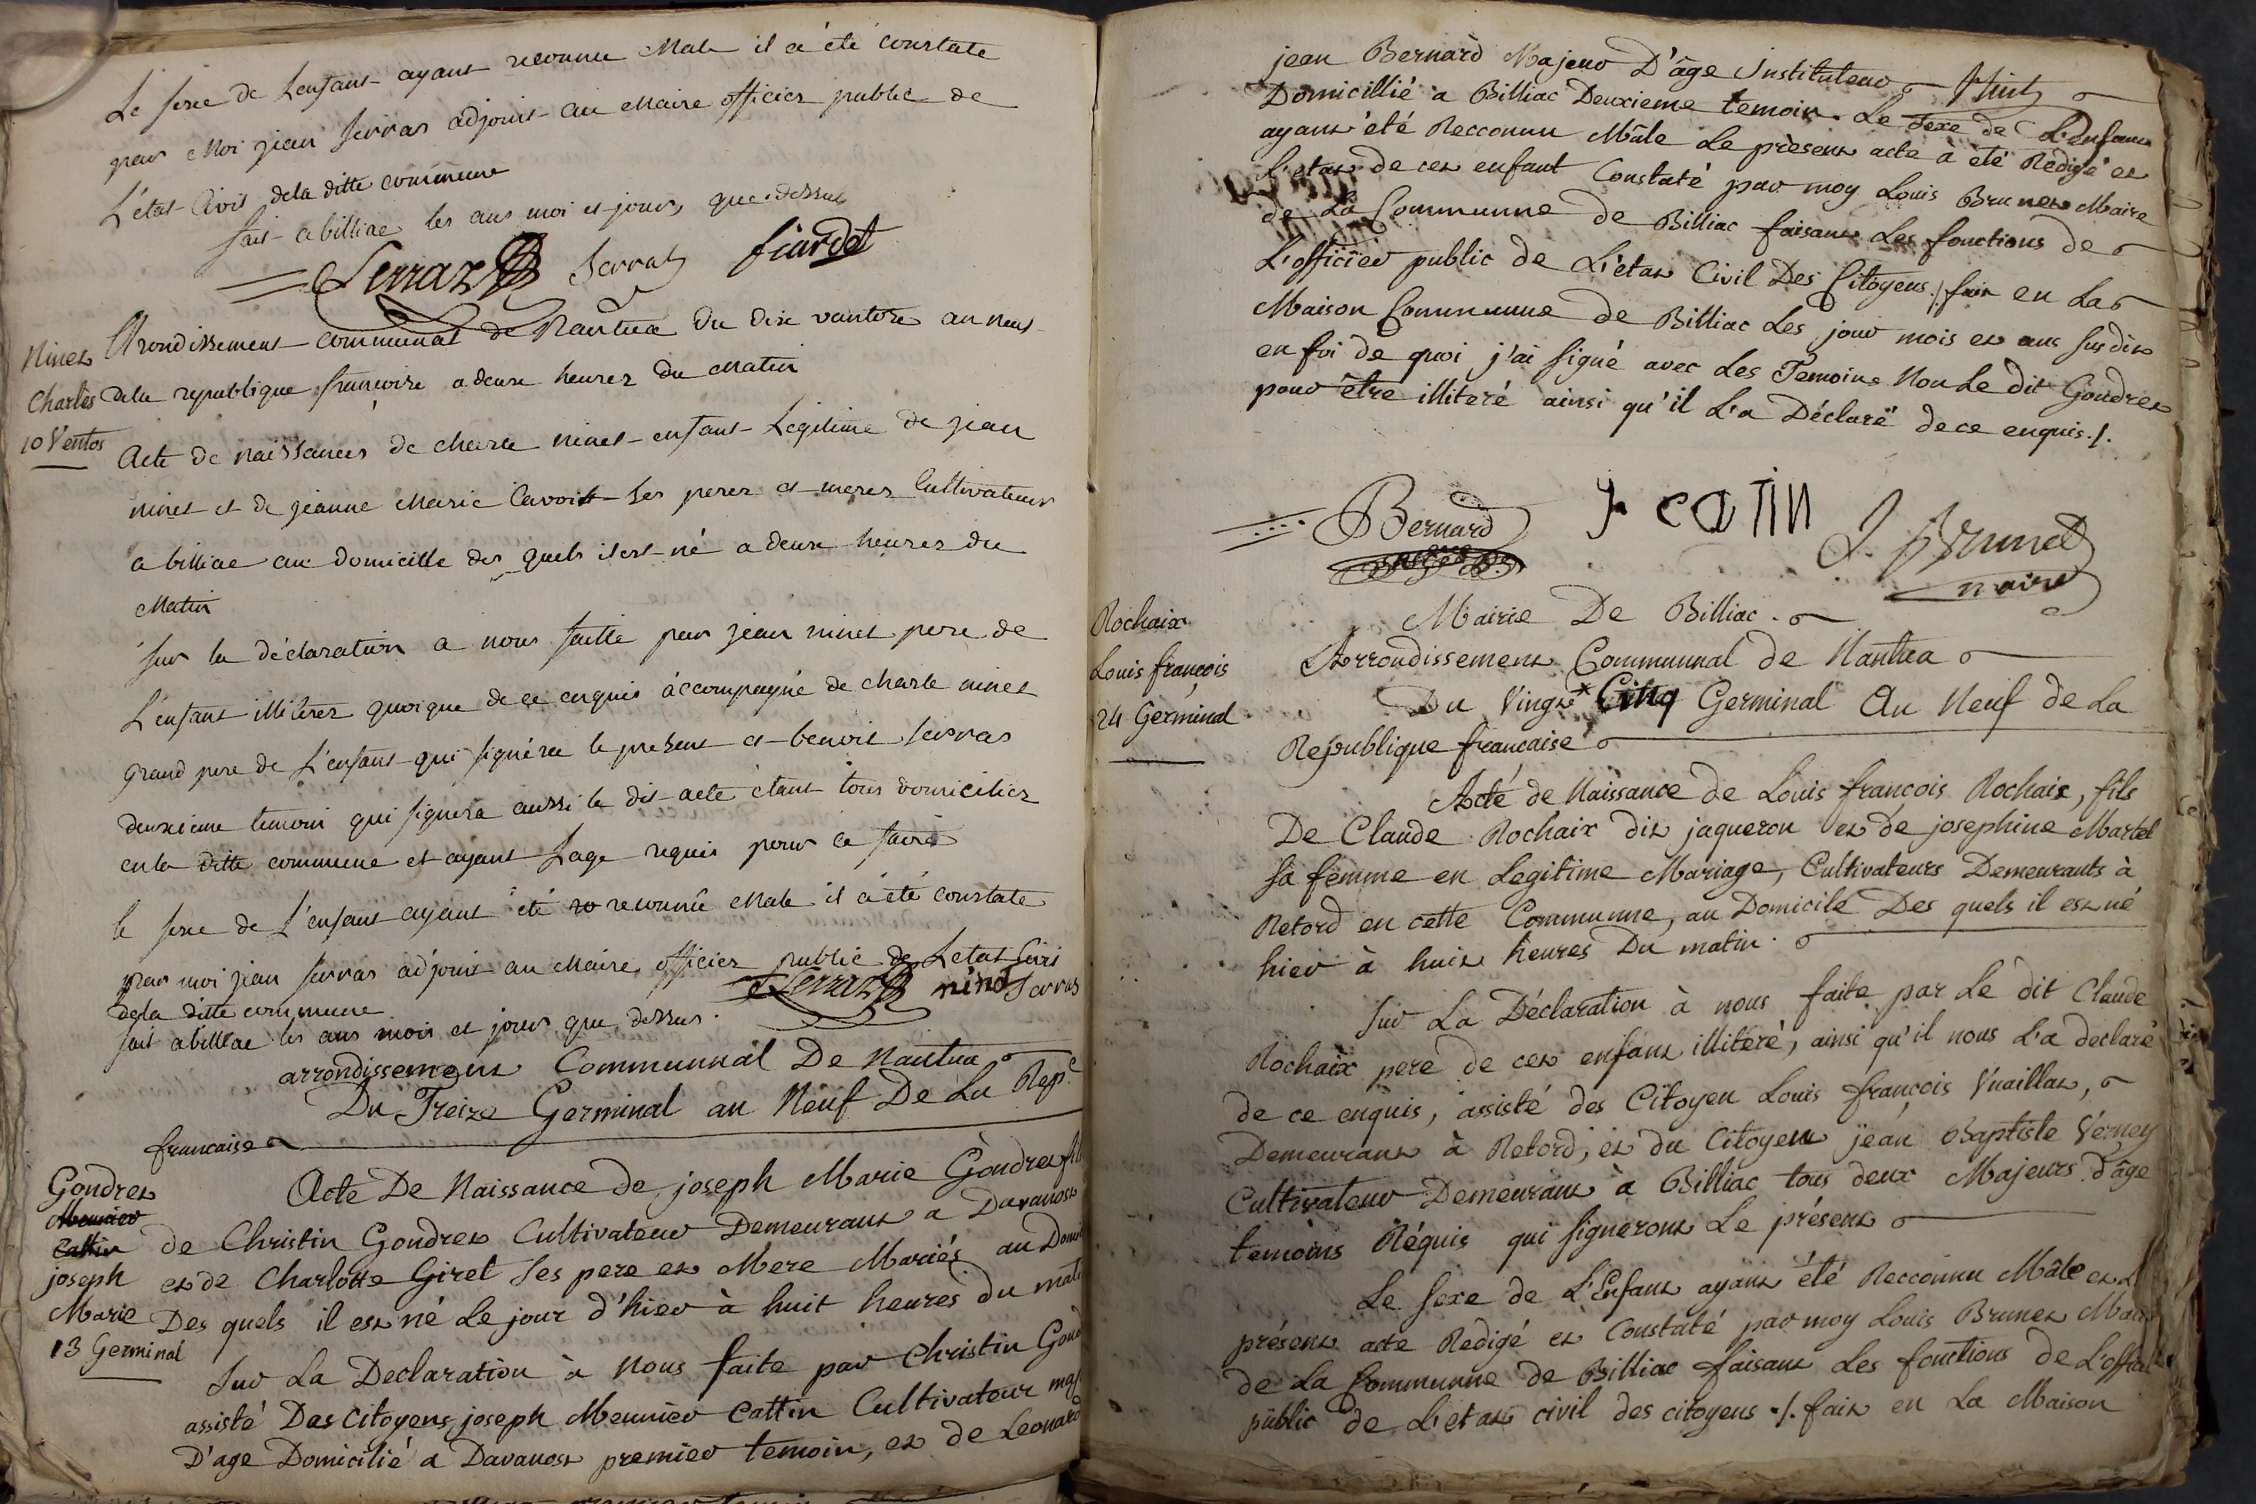 Le sexe de Lenfant ayant reconnu Male il a été constate
par Moi jean Serras adjoint au Maire officier public de
L'état Civis dela ditte commune
fait a billiac les ans moi et jours, que dessus
Serraz Serraz fiardet
Ninet
Charles
10 Ventos
Arondissement communal de Nantua du dix vantose an neuf
dela republique francoise a deux heures du matin
Acte de naissances de charle ninet enfant Legitime de jean
ninet et de jeanne Marie Cavoit ses peres et meres Cultivateurs
a billiac au domicille des quels il est né a deux heures du
Matin
sur la déclaration a nous faitte par jean ninet pere de
L'enfant illiterez quoique de ce enquis accompagné de charle ninet
grand pere de L'enfant qui signéra le present et benoit serras
deuxieme temoin qui signera aussi le dit acte étant tous domiciliez
en la ditte commune et ayant Lage requis pour ce faire
le sexe de L'enfant ayant été reconnû Male il a été constate
par moi jean serras adjoint au Maire officier public de Letat Civis
dela ditte commune
Serraz ninet Serras
fait a billiac les ans mois et jours que dessus.
arrondissement Communnal De Nantua
Du Treize Germinal an Neuf De La Rep.e
francaise
Gondret
Meunier
Cattin
joseph
Marie
13 Germinal
Acte De Naissance de joseph Marie Gondret fils
de Christin Gondret Cultivateur Demeurant a Davanost
et de Charlotte Giret Ses pere et Mere Mariés au Domi
Des quels il est né Le jour d'hier à huit heures du mati
Sur La Declaration à Nous faite par Christin Gond
assisté Das Citoyens joseph Meunier Cattin Cultivateur maj
D'age Domicilié a Davanost premier temoin, et de Leonard
jean Bernard Majeur D'âge Instituteur
Domicillié a Billiac Deuxieme temoin. Le Sexe de L'enfant
ayant été Recconnu Mâle Le présent acte à été Rédigé et
L'etat de cet enfant Constaté par moy Louis Brunet Maire
de La Communne de Billiac faisant Les fonctions de
L'officier public de L'etat Civil Des Citoyens ./. fait en La
Maison Communne de Billiac Les jour mois et ans susdit
en foi de quoi j'ai signé avec Les Temoins Non Le dit Gondret
pour être illiteré ainsi qu'il L'a Déclaré de ce enquis ./.
Bernard J. CATIN L. Brunet
maire
Rochaix
Louis françois
24 Germinal
Mairie De Billiac.
Arrondissement Communnal de Nantua
Du Vingt Cinq Germinal An Neuf de La
Republique francaise
Acte de Naissance de Louis françois Rochaix, fils
De Claude Rochaix dit jaqueron et de josephine Martel
sa femme en Legitime Mariage, Cultivateurs Demeurants à
Retord en cette Communne, au Domicile Des quels il est né
hier à huit heures Du matin.
Sur La Déclaration à nous faite par Le dit Claude
Rochaix pere de cet enfant illiteré, ainsi qu'il nous L'a declaré
de ce enquis, assisté des Citoyen Louis françois Vuaillat,
Demeurant à Retord, et du Citoyen jean Baptiste Verney
Cultivateur Demeurant à Billiac tous deux Majeurs d'âge
temoins Réquis qui signeront Le présent
Le Sexe de L'Enfant ayant été Recconnu Mâle et L
présent acte Redigé et Constaté par moy Louis Brunet Maire
de La Communne de Billiac faisant Les fonctions de L'offici
public de L'etat civil des citoyens ./. fait en La Maison